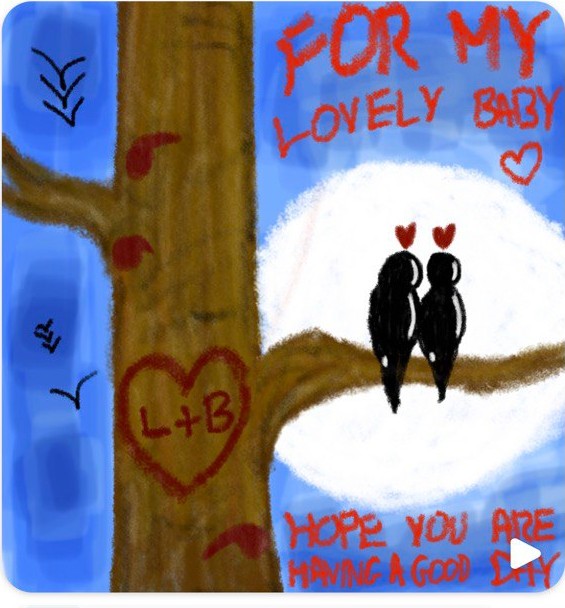 FOR MY
LOVELY BABY
L+B
HOPE YOU ARE
HAVING A GOOD DAY